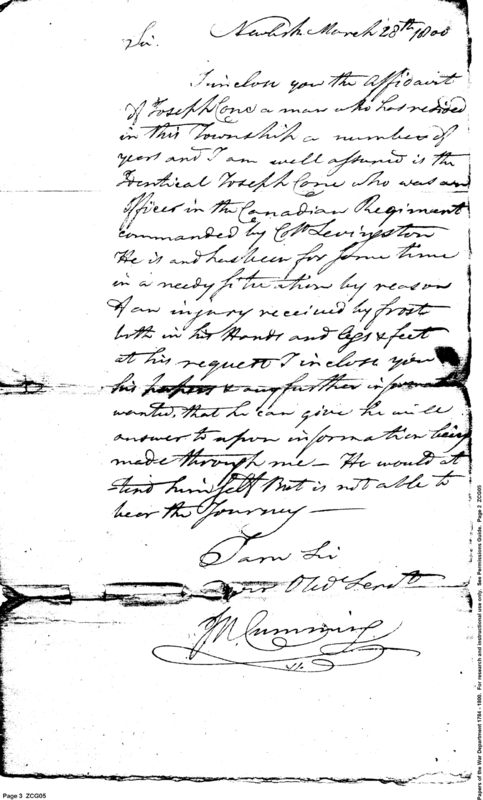 Newark March 28th 1800
Sir.
I inclose you the Affidavit
of Joseph Cone a man who has resided
in this Township a number of
years and I am well assured is the
Identical Joseph Cone who was an
Officer in the Canadian Regiment
commanded by Coll. Levingston
He is and has been for some time
in a needy situation by reason
of an injury received by frost
both in his Hands and legs & feet
at his request I inclose you
his papers & any further
wanted, that he can give he will
answer to upon information being
made through me — He would at
tend himself But is not able to
bear the Journey —
I am Sir
your Obdt. Servt.
J N Cumming
Page 3 ZCG05
Papers of the War Department 1784 - 1800. For research and instructional use only. See Permissions Guide. Page 2 ZCG05